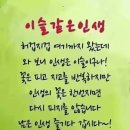 이슬같은인생
허겁지겁 여기까지 왔는데
와 보니 인생은 이슬이구나!
꽃은 피고 지고를 반복하지만
인생의 꽃은 한번지면
다시 피지를 않습니다
남은 인생 즐기다 갑시다~!